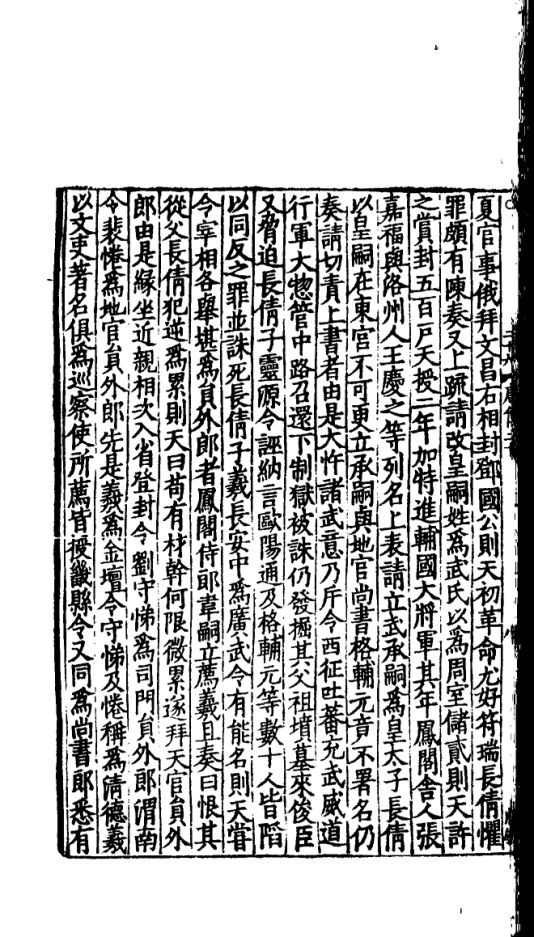 夏官事俄拜文昌右相封鄧國公則天初革命尤好符瑞長倩懼
罪頗有陳奏又上䟽請改皇嗣姓爲武氏以爲周室儲貳則天許
之賞封五百戶天授二年加特進輔國大將軍其年鳳閣舍人張
嘉福與洛州人王慶之等列名上表請立武承嗣爲皇太子長倩
以皇嗣在東宮不可更立承嗣與地官尚書格輔元竟不署名仍
奏請切責上書者由是大忤諸武意乃斥令西征吐蕃充武威道
行軍大惣管中路召還下制獄被誅仍發掘其父祖墳墓來俊臣
又脅迫長倩子靈源令誣納言歐陽通及格輔元等數十人皆陷
以同反之罪並誅死長倩子羲長安中爲廣武令有能名則天嘗
令宰相各舉堪爲員外郎者鳳閣侍郎韋嗣立薦羲且奏曰恨其
從父長倩犯逆爲累則天曰苟有材幹何限微累遂拜天官員外
郎由是緣坐近親相次入省登封令劉守悌爲司門員外郎渭南
令裴惓爲地官員外郎先是羲爲金壇令守悌及惓稱爲清德羲
以文吏著名俱爲巡察使所薦皆授畿縣令又同爲尚書郎悉有